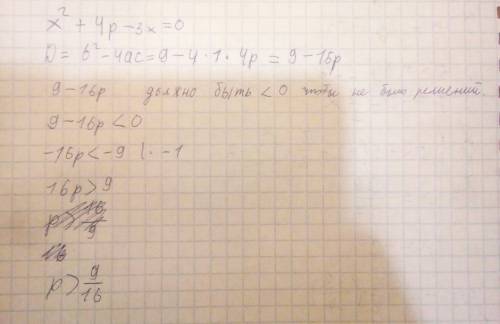 x² + 4p - 3x = 0
D = b² - 4ac = 9 - 4 · 1 · 4p = 9 - 16p
9 - 16p должно быть < 0 чтобы не было решений.
9 - 16p < 0
-16p < -9 | · -1
16p > 9
p > 9/16